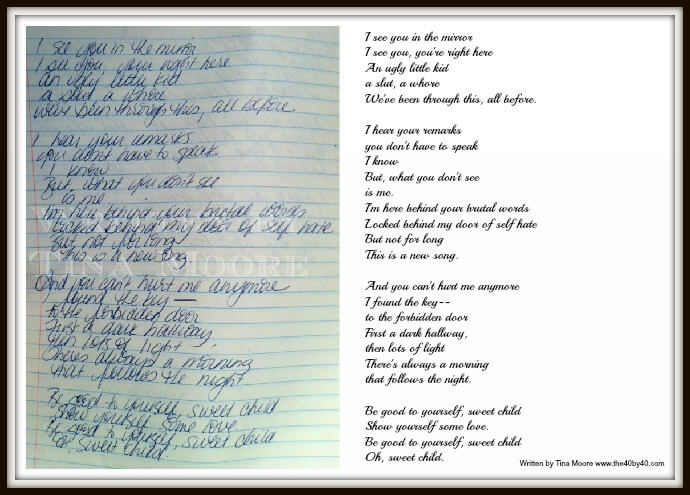 I see you in the mirror
I see you, your right here
An ugly little kid
a slut, a whore
We've been through this, all before.
I hear your remarks
you don't have to speak
I know
But, what you don't see
Is me.
I'm here behind your brutal words
Locked behind my door of self hate
But not for long
This is a new song.
TINA MOORE
And you can't hurt me anymore
I found the key —
to the forbidden door
First a dark hallway
then lots of light
There's always a morning
that follows the night
Be good to yourself, sweet child
Show yourself some love
Be good to yourself, sweet child
Oh, sweet child.
I see you in the mirror
I see you, you're right here
An ugly little kid
a slut, a whore
We've been through this, all before.
I hear your remarks
you don't have to speak
I know
But, what you don't see
is me.
I'm here behind your brutal words
Locked behind my door of self hate
But not for long
This is a new song.
And you can't hurt me anymore
I found the key--
to the forbidden door
First a dark hallway,
then lots of light
There's always a morning
that follows the night.
Be good to yourself, sweet child
Show yourself some love.
Be good to yourself, sweet child
Oh, sweet child.
Written by Tina Moore www.the40by40.com